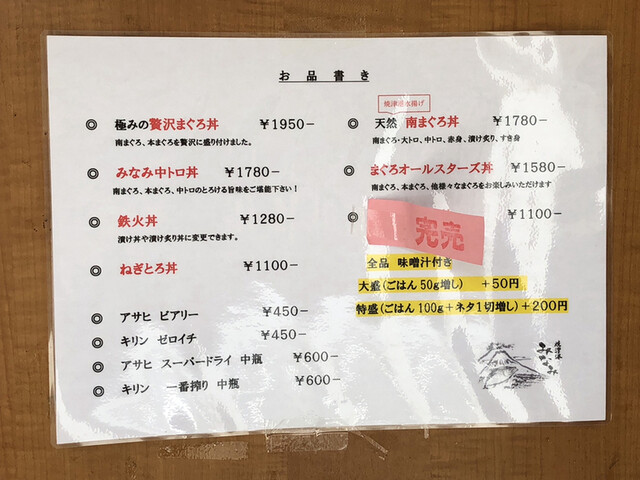 お品書き
◎ 極みの贅沢まぐろ丼 ￥1950−
南まぐろ、本まぐろを贅沢に盛り付けました。
◎ みなみ中トロ丼 ￥1780−
南まぐろ、本まぐろ、中トロのとろける旨味をご堪能下さい！
◎ 鉄火丼 ￥1280−
漬け丼や漬け炙り丼に変更できます。
◎ ねぎとろ丼 ￥1100−
◎ アサヒ ビアリー ￥450−
◎ キリン ゼロイチ ￥450−
◎ アサヒ スーパードライ 中瓶 ￥600−
◎ キリン 一番搾り 中瓶 ￥600−
焼津港水揚げ
◎ 天然 南まぐろ丼 ￥1780−
南まぐろ・大トロ、中トロ、赤身、漬け炙り、すき身
◎ まぐろオールスターズ丼 ￥1580−
南まぐろ、本まぐろ、他様々なまぐろをお楽しみいただけます
◎ ￥1100−
完売
全品 味噌汁付き
大盛（ごはん 50g増し） ＋50円
特盛（ごはん 100g＋ネタ1切増し）＋200円
焼津港